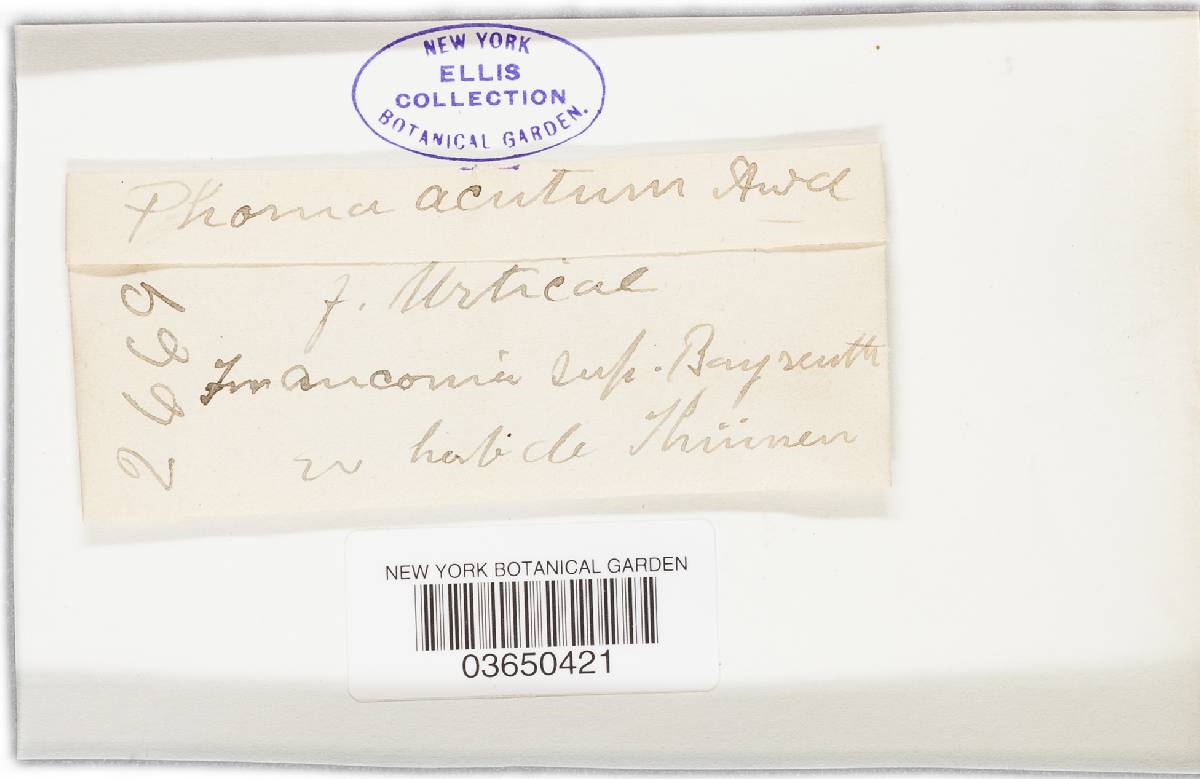 NEW YORK
ELLIS
COLLECTION
BOTANICAL GARDEN.
Phoma acutum Awd
f. Urticae
Franconia sup. Bayreuth
hab de Thümen
2669
NEW YORK BOTANICAL GARDEN
03650421